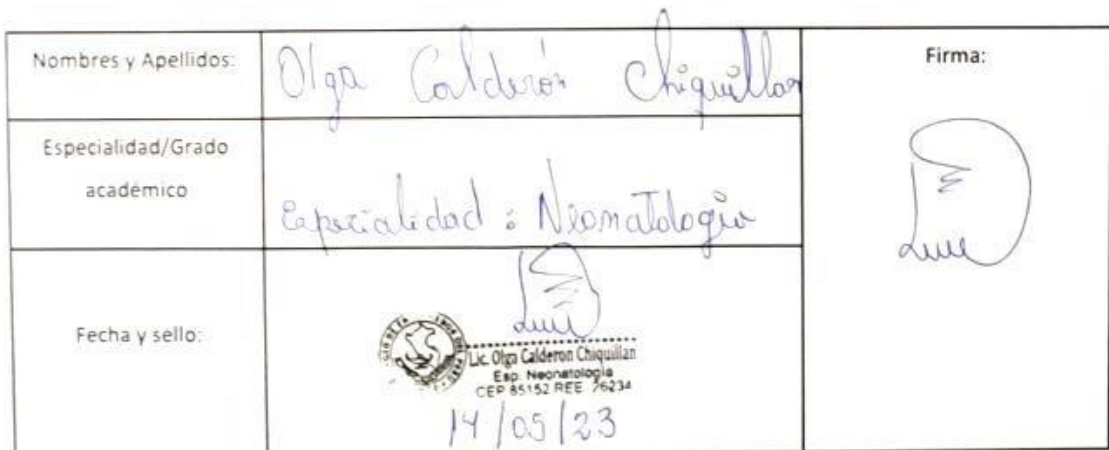 Nombres y Apellidos:
Olga Calderón Chiquillan
Firma:
Especialidad/Grado
académico
Especialidad : Neonatología
Fecha y sello:
Lic. Olga Calderon Chiquillan
Esp. Neonatología
CEP 85152 REE 26234
14/05/23